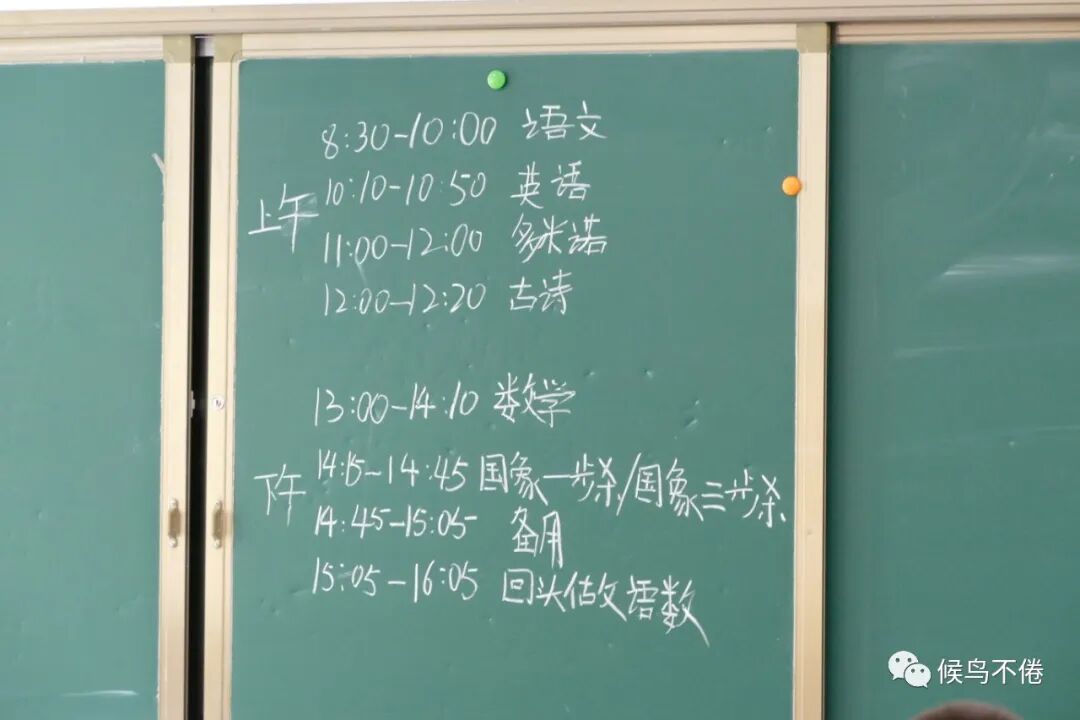 上午
8:30-10:00 语文
10:10-10:50 英语
11:00-12:00 多米诺
12:00-12:20 古诗
下午
13:00-14:10 数学
14:15-14:45 国象一步杀/国象三步杀
14:45-15:05 备用
15:05-16:05 回头估文语数
候鸟不倦